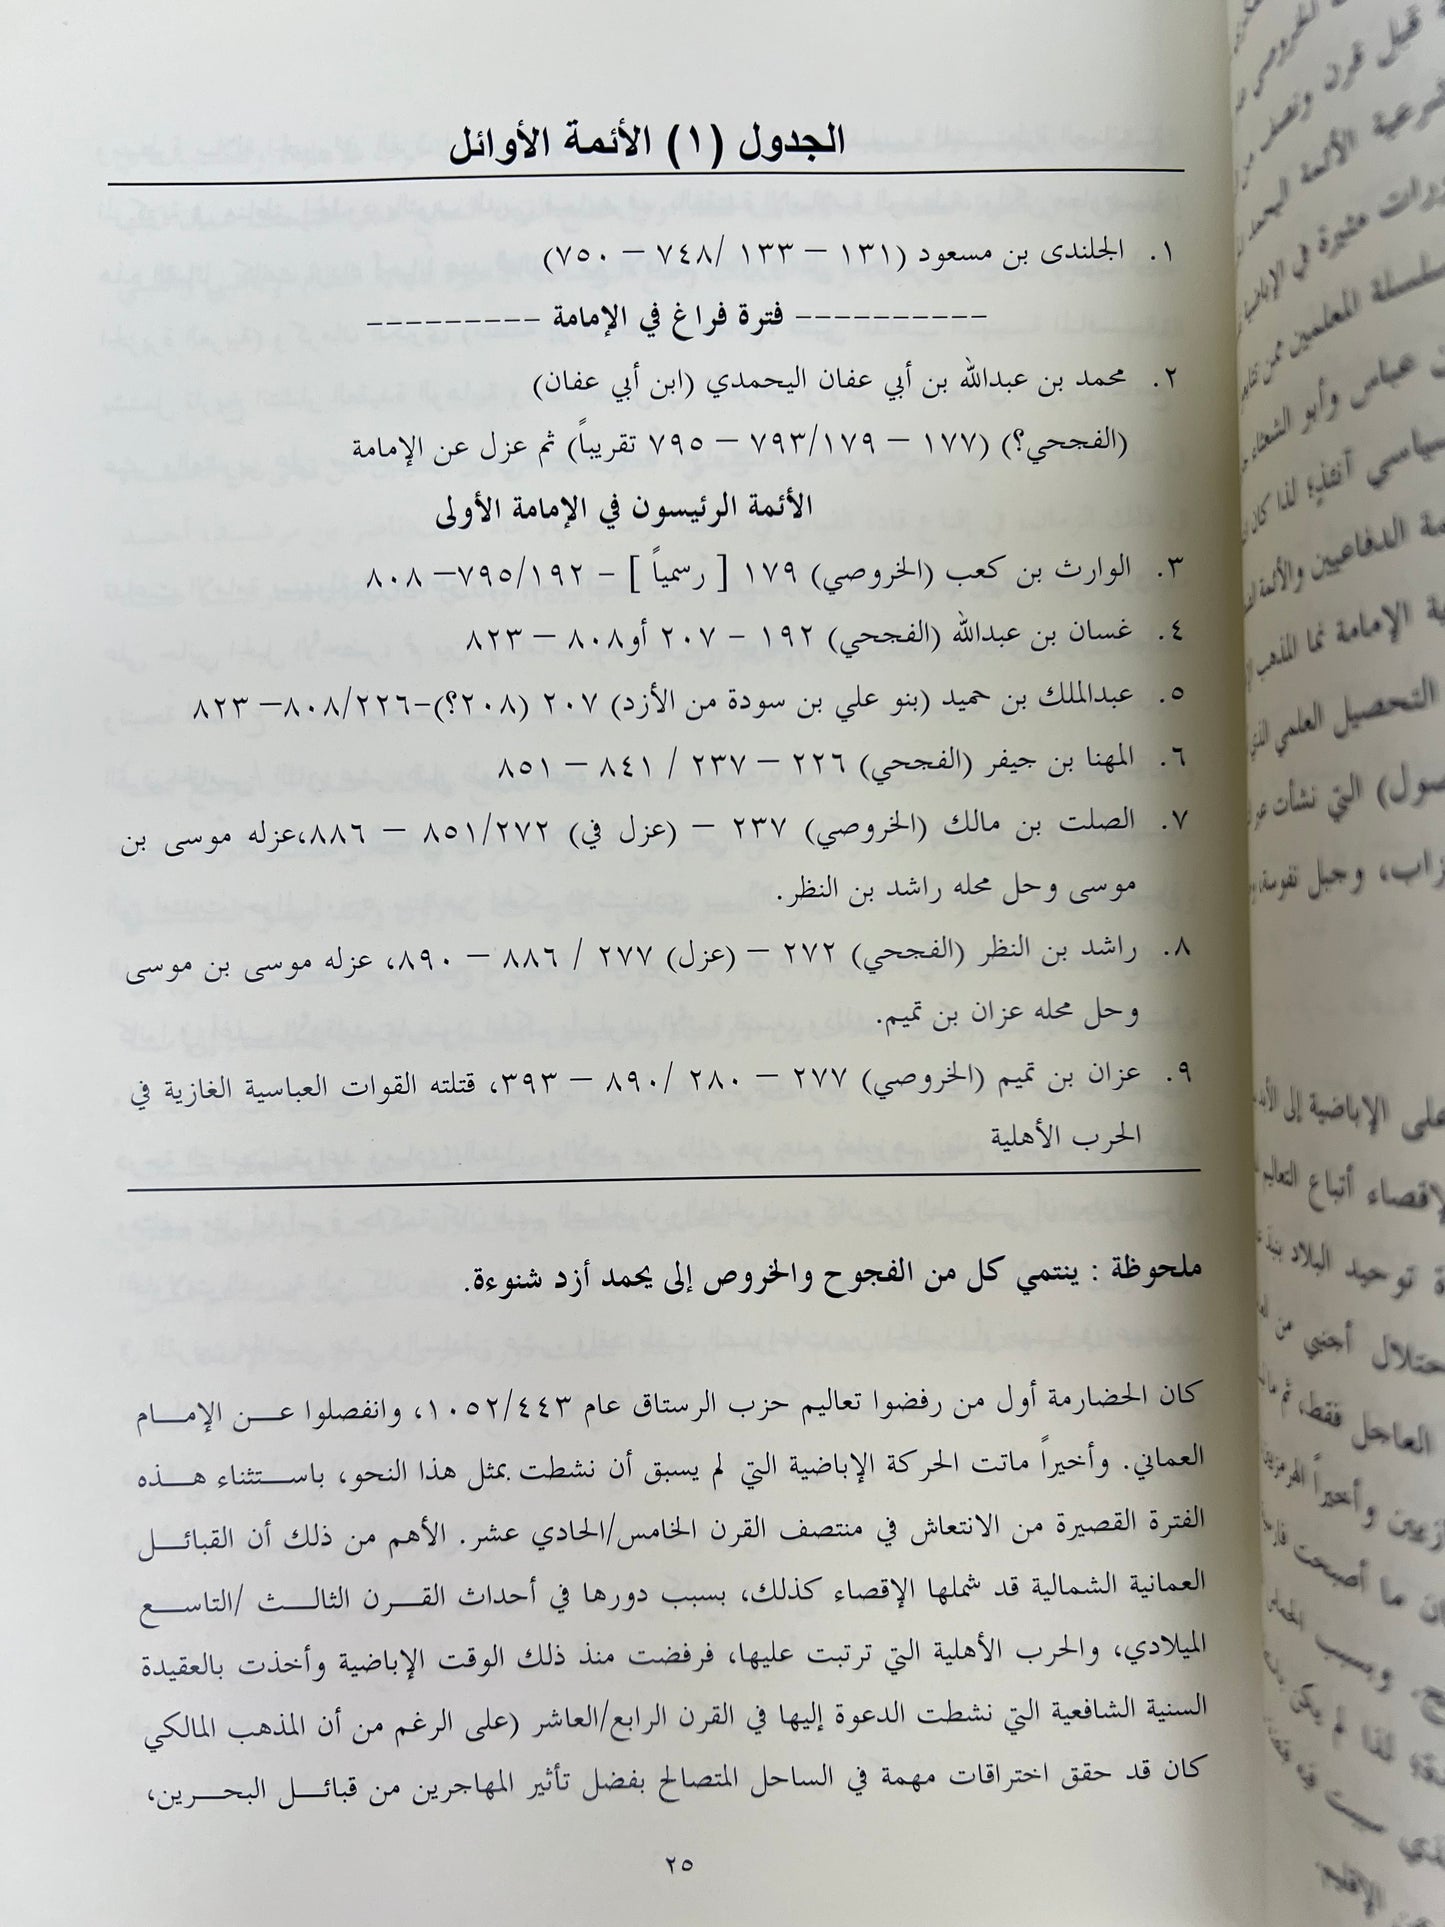 الجدول (١) الأئمة الأوائل
١. الجلندى بن مسعود (١٣١ – ١٣٣ /٧٤٨ – ٧٥٠)
---------- فترة فراغ في الإمامة ---------
٢. محمد بن عبدالله بن أبي عفان اليحمدي (ابن أبي عفان)
(الفجحي؟) (١٧٧ – ٧٩٣/١٧٩ – ٧٩٥ تقريباً) ثم عزل عن الإمامة
الأئمة الرئيسون في الإمامة الأولى
٣. الوارث بن كعب (الخروصي) ١٧٩ [ رسمياً ] – ٧٩٥/١٩٢– ٨٠٨
٤. غسان بن عبدالله (الفجحي) ١٩٢ - ٢٠٧ أو٨٠٨ – ٨٢٣
٥. عبدالملك بن حميد (بنو علي بن سودة من الأزد) ٢٠٧ (٢٠٨؟)-٨٠٨/٢٢٦– ٨٢٣
٦. المهنا بن جيفر (الفجحي) ٢٢٦ – ٢٣٧ / ٨٤١ – ٨٥١
٧. الصلت بن مالك (الخروصي) ٢٣٧ – (عزل في) ٨٥١/٢٧٢ – ٨٨٦،عزله موسى بن
موسى وحل محله راشد بن النظر.
٨. راشد بن النظر (الفجحي) ٢٧٢ – (عزل) ٢٧٧ / ٨٨٦ – ٨٩٠، عزله موسى بن موسى
وحل محله عزان بن تميم.
٩. عزان بن تميم (الخروصي) ٢٧٧ – ٢٨٠ /٨٩٠ – ٣٩٣، قتلته القوات العباسية الغازية في
الحرب الأهلية
ملحوظة : ينتمي كل من الفجوح والخروص إلى يحمد أزد شنوءة.
كان الحضارمة أول من رفضوا تعاليم حزب الرستاق عام ١٠٥٢/٤٤٣، وانفصلوا عن الإمام
العماني. وأخيراً ماتت الحركة الإباضية التي لم يسبق أن نشطت بمثل هذا النحو، باستثناء هذه
الفترة القصيرة من الانتعاش في منتصف القرن الخامس/الحادي عشر. الأهم من ذلك أن القبائل
العمانية الشمالية قد شملها الإقصاء كذلك، بسبب دورها في أحداث القرن الثالث /التاسع
الميلادي، والحرب الأهلية التي ترتبت عليها، فرفضت منذ ذلك الوقت الإباضية وأخذت بالعقيدة
السنية الشافعية التي نشطت الدعوة إليها في القرن الرابع/العاشر (على الرغم من أن المذهب المالكي
كان قد حقق اختراقات مهمة في الساحل المتصالح بفضل تأثير المهاجرين من قبائل البحرين،
٢٥